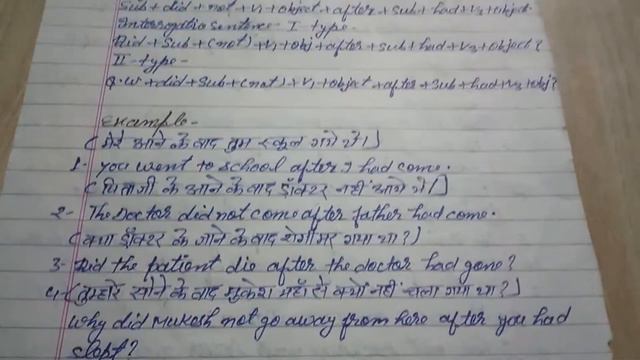 Sub + did + not + V1 + object + after + Sub + had + V3 + object.
Interrogative sentence - I type -
Did + Sub + (not) + V1 + obj + after + sub + had + V3 + object?
II - type -
Q.w + did + Sub + (not) + V1 + object + after + sub + had + V3 + obj?
Example -
(मेरे आने के बाद तुम स्कूल गये थे।)
1- You went to school after I had come.
(पिताजी के आने के बाद डॉक्टर नहीं आये थे।)
2- The Doctor did not come after father had come.
(क्या डॉक्टर के जाने के बाद रोगी मर गया था?)
3- Did the patient die after the doctor had gone?
4- (तुम्हारे सोने के बाद मुकेश यहाँ से क्यों नहीं चला गया था?)
Why did Mukesh not go away from here after you had
slept?